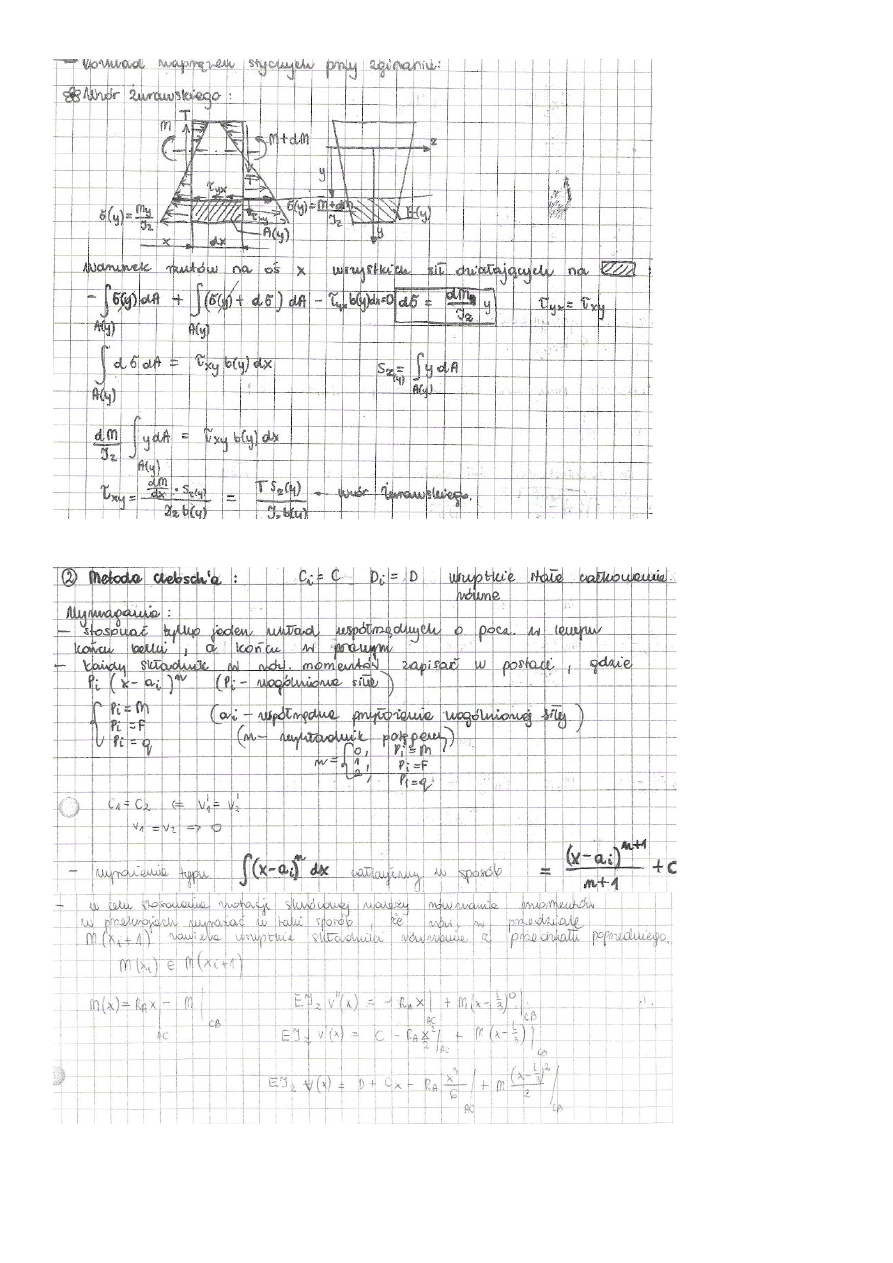 – Rozkład naprężeń stycznych przy zginaniu:
Wzór Żurawskiego :
T
M
M+dM
z
y
T
τyx
σ(y) = My/Jz
σ(y) = M+dM/Jz
τxy
B(y)
A(y)
y
x
dx
Warunek rzutów na oś x wszystkich sił działających na :
- ∫ σ(y) dA + ∫ (σ(y) + dσ) dA - τyx b(y)dx=0 dσ = dM/Jz y τyx = τxy
A(y) A(y)
∫ dσ dA = τxy b(y) dx Sz(y) = ∫ y dA
A(y) A(y)
dM/Jz ∫ y dA = τxy b(y) dx
A(y)
τxy = dM/dx · Sz(y) / Jz b(y) = T Sz(y) / Jz b(y) - wzór Żurawskiego.
② Metoda Clebsch'a : Ci = C Di = D wszystkie stałe całkowania
równe
Wymagania :
– stosować tylko jeden układ współrzędnych o pocz. w lewym
końcu belki, a końcu w prawym
– każdy składnik w rów. momentów zapisać w postaci, gdzie
Pi (x-ai)^n (Pi – uogólniona siła)
Pi = M
Pi = F
Pi = q
(ai – współrzędna przyłożenia uogólnionej siły)
(n – wykładnik potęgowy)
n = { 0, Pi = M
1, Pi = F
2, Pi = q
C1 = C2 ⇐ V1' = V2'
V1 = V2 ⇒ D
– wyrażenie typu ∫(x-ai)^n dx całkujemy w sposób = (x-ai)^n+1 / n+1 + C
– w celu stosowania notacji skróconej należy równania momentów
w przekrojach wyrażać w taki sposób, że rów. w przedziale
M(xi+1) zawiera wszystkie składniki równania z przedziału poprzedniego.
M(xi) ∈ M(xi+1)
M(x) = RA x |AC - M |CB
EJz v''(x) = - RA x |AC + M(x-L/3)^0 |CB
EJz v'(x) = C - RA x²/2 |AC + M(x-L/3) |CB
EJz v(x) = D + Cx - RA x³/6 |AC + M (x-L/3)²/2 |CB